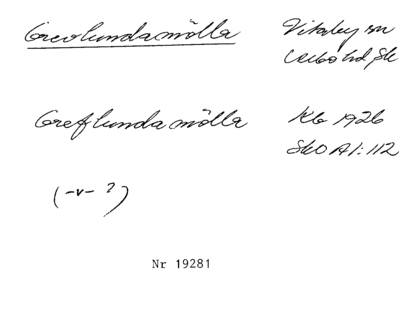 Grevlundamölla
Vitaby sn
Albo hd Sk
Greflundamölla
Kb 1926
SkO A1:112
(-v- ?)
Nr 19281